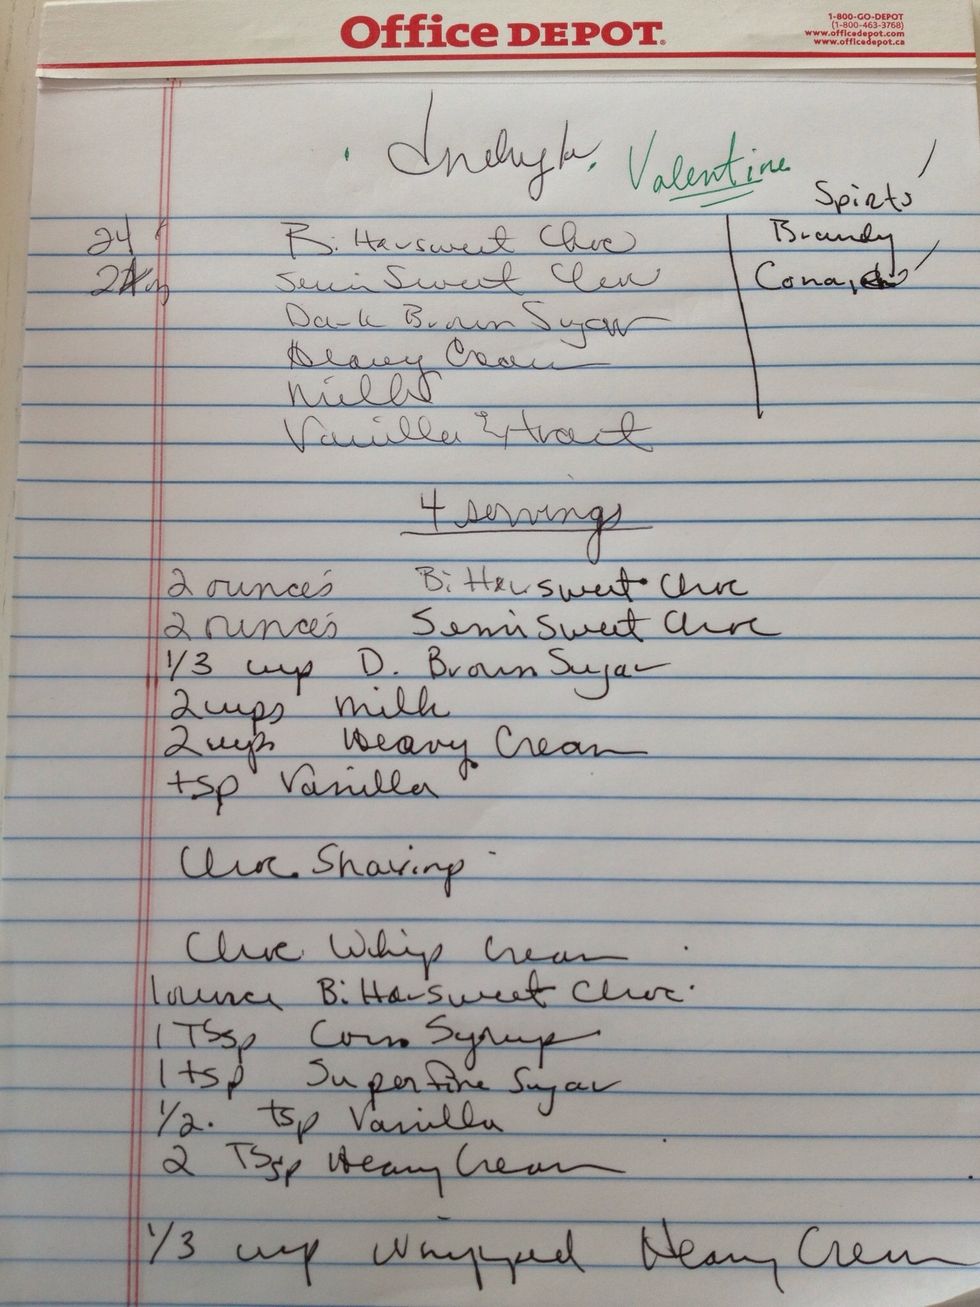 Office DEPOT.
1-800-GO-DEPOT
(1-800-463-3768)
www.officedepot.com
www.officedepot.ca
Valentine
Spirits
24 Bittersweet Choc
Brandy
Semi Sweet Choc
Dark Brown Sugar
Heavy Cream
Milk
Vanilla Extract
4 servings
2 ounces Bittersweet Choc
2 ounces Semi Sweet Choc
1/3 cup D. Brown Sugar
2 cups milk
2 cups Heavy Cream
tsp Vanilla
Choc. Shaving
Choc Whip Cream
1 ounce Bittersweet Choc.
1 TSsp Corn Syrup
1 tsp Superfine Sugar
1/2. tsp Vanilla
2 TSsp Heavy Cream
1/3 cup Whipped Heavy Cream